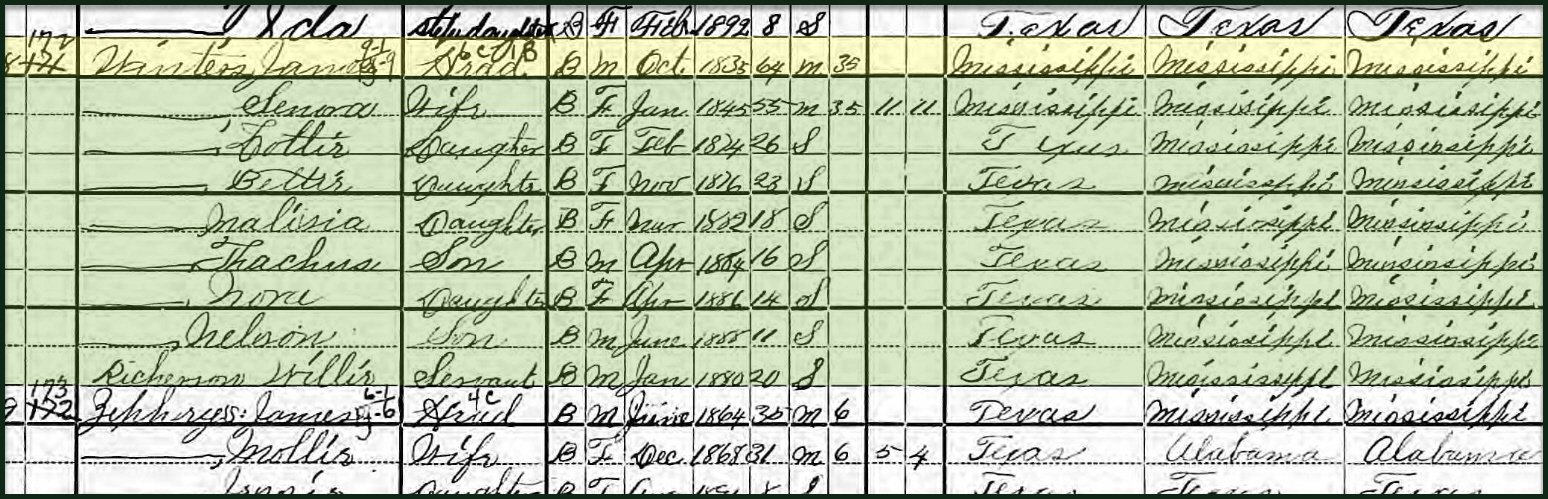 172 Ida Stepdaughter B F Feb 1892 8 S Texas Texas Texas
171 Winters James Head B M Oct. 1835 64 M 35 Mississippi Mississippi Mississippi
Senora Wife B F Jan 1845 55 M 35 11 11 Mississippi Mississippi Mississippi
Daughter B F Feb 1874 26 S Texas Mississippi Mississippi
Bettie Daughter B F Nov 1876 23 S Texas Mississippi Mississippi
Malisia Daughter B F Mar 1882 18 S Texas Mississippi Mississippi
Thachus Son B M Apr 1884 16 S Texas Mississippi Mississippi
Nora Daughter B F Apr 1886 14 S Texas Mississippi Mississippi
Nelson Son B M June 1888 11 S Texas Mississippi Mississippi
Richerson Willie Servant B M Jan 1880 20 S Texas Mississippi Mississippi
173
9 172 Zephryss: James Head B M June 1864 35 M 6 Texas Mississippi Mississippi
Mollie Wife B F Dec 1868 31 M 6 5 4 Texas Alabama Alabama
Daughter B F